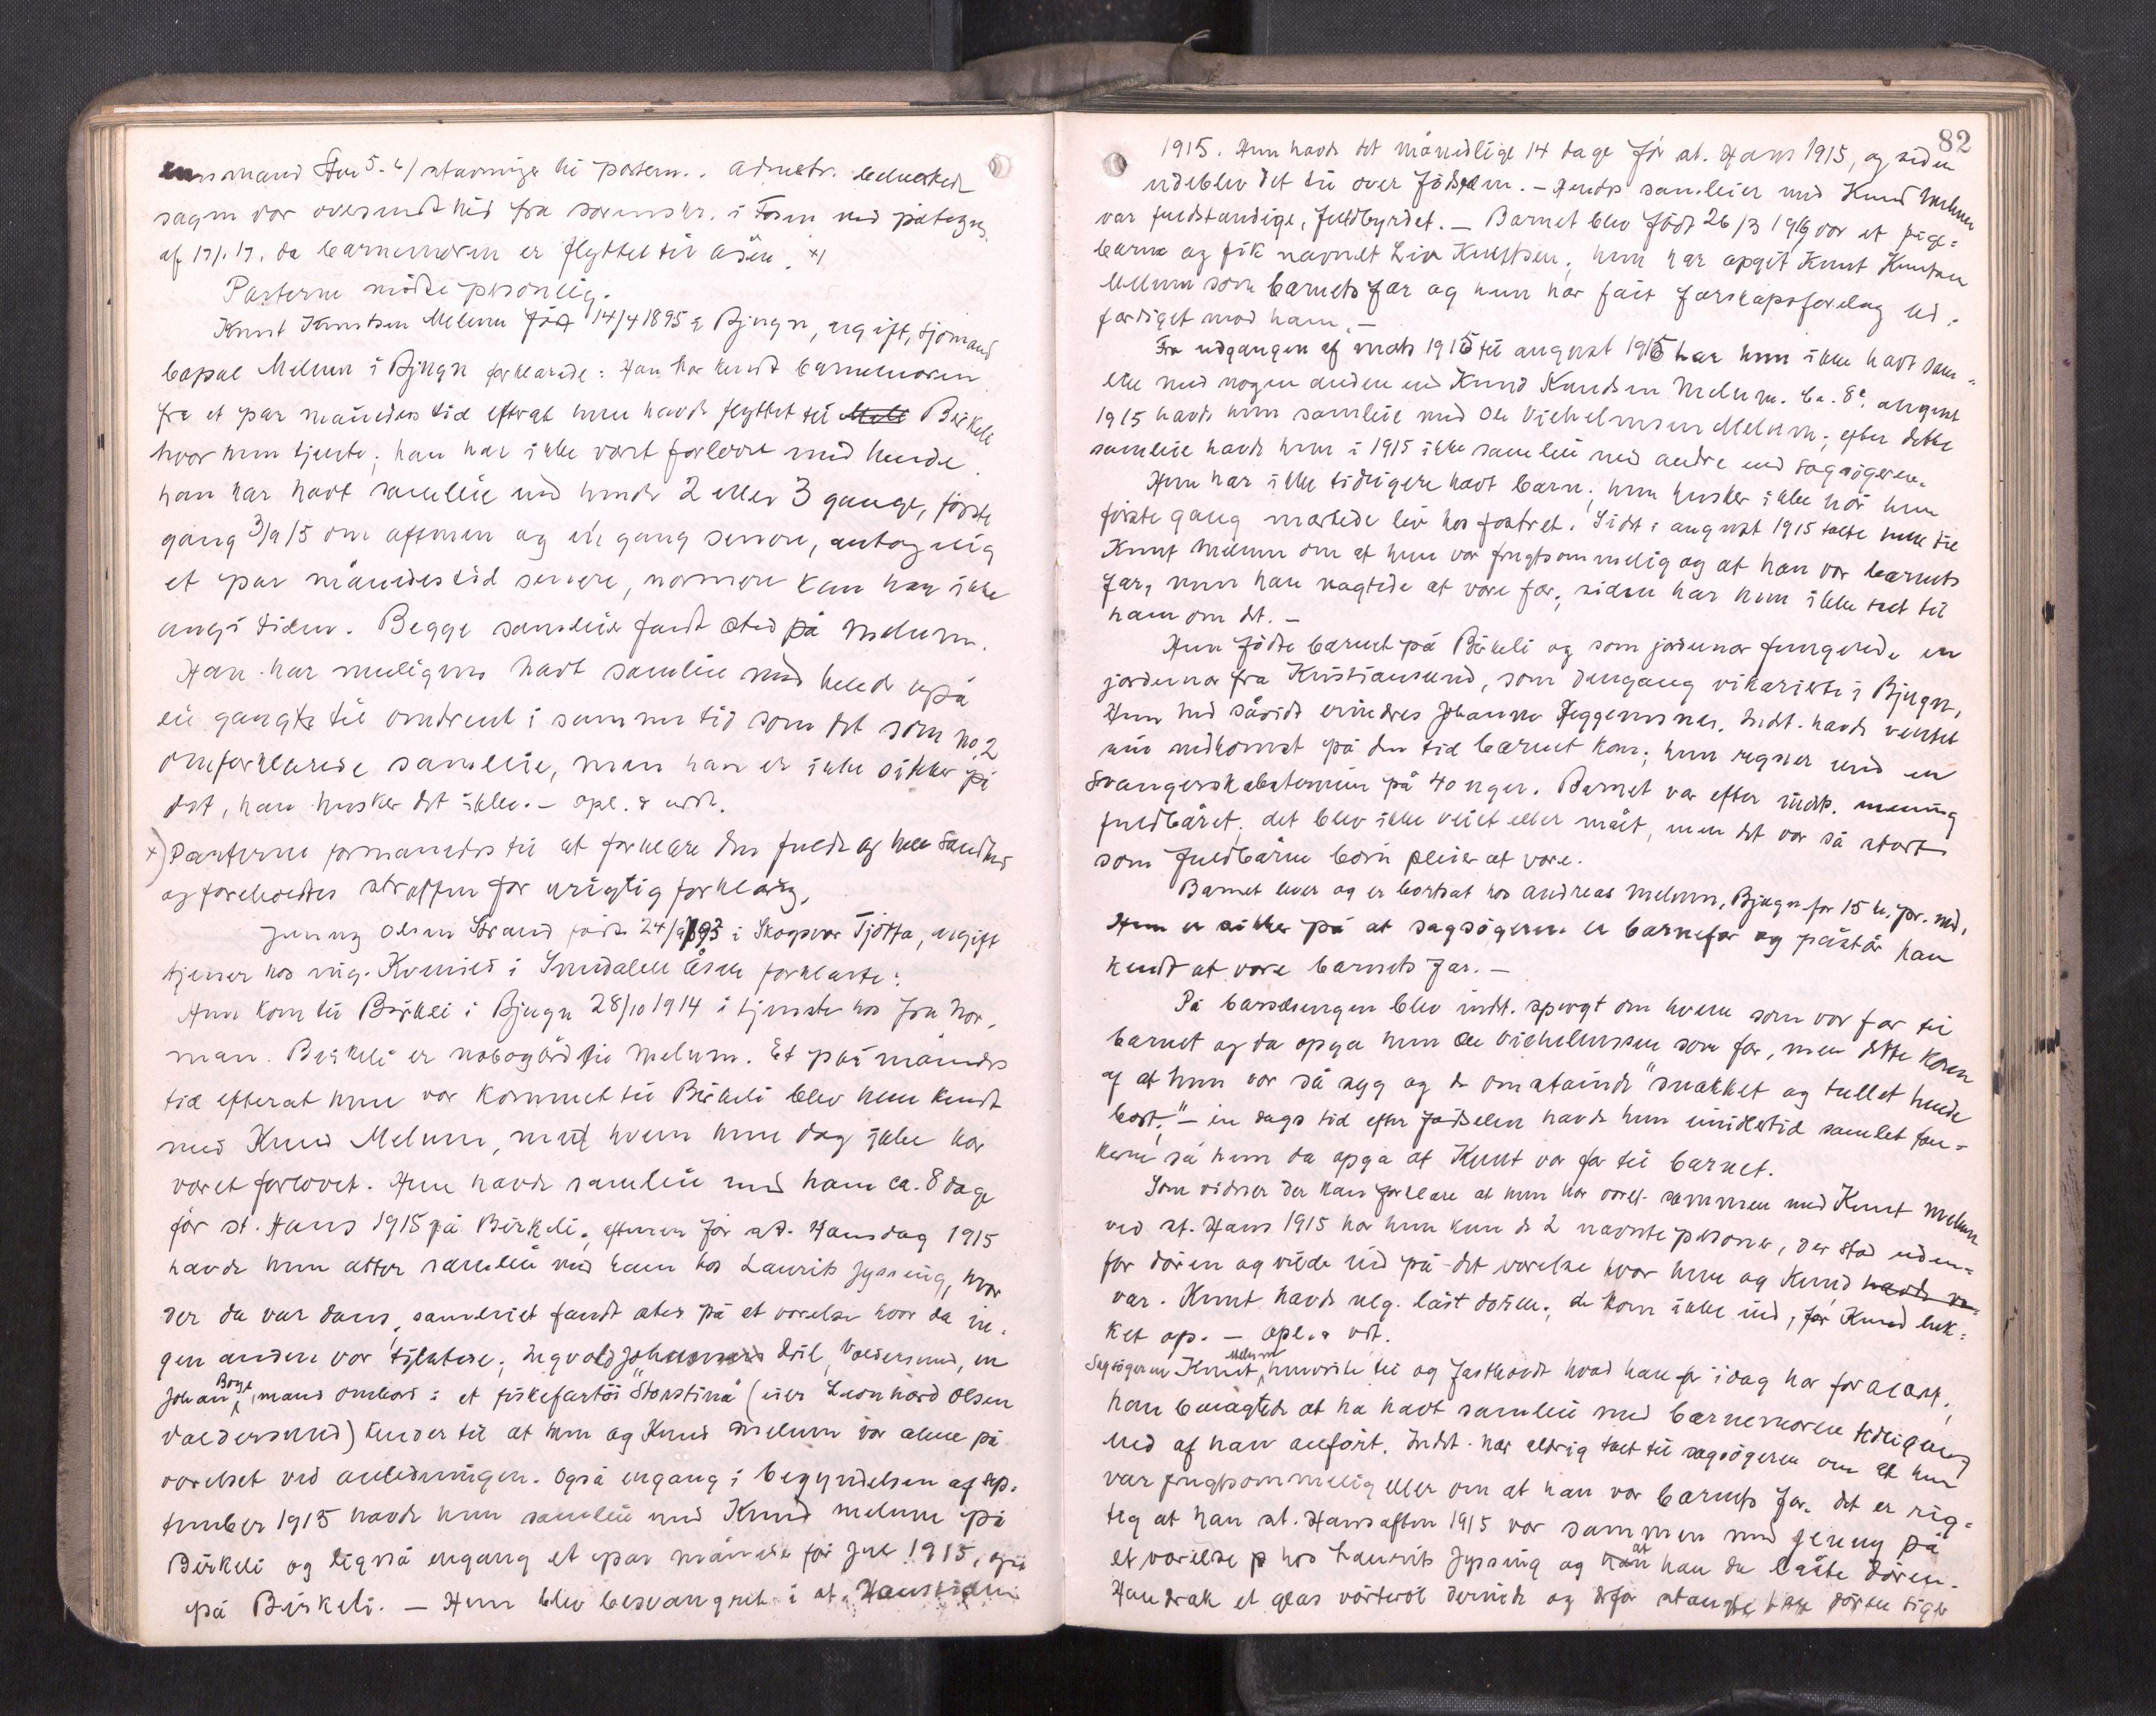 lensmand stevninger til partern. adm.str. bemerked
sagen var oversendt hid fra sorenskr. i Fosen med påtegn.
af 17/1.17. da barnemoren er flyttet til Åsen. x)
Parterne mødte personlig.
Knut Knutsen Melum født 14/4 1895 i Bjugn, ugift, sjømand
bopæl Melum i Bjugn forklarede: Han har kendt barnemoren
fra et par måneders tid efterat hun havde flyttet til Birkeli
hvor hun tjente; han har ikke vært forlovet med hende.
han har havt samleie med hende 2 eller 3 gange, første
gang 3/9 15 om aftenen og én gang senere, antagelig
et par måneders tid senere, nærmere kan han ikke
angi tiden. Begge samleier fandt sted på Melum.
Han har muligens havt samleie med hende også
én gang til omtrent i samme tid som det som no 2
omforklarede samleie, men han er ikke sikker på
det, han husker det ikke. – opl. & vedt.
x) Parterne formanedes til at forklare den fulde og hele sandhed
og foreholdtes straffen for urigtig forklaring.
Jenny Olsen Strand født 24/9 1893 i Skogsvær Tjøtta, ugift
tjener hos ung. Kvernsed i Åsen forklarte:
Hun kom til Birkeli i Bjugn 28/10 1914 i tjeneste hos fru Nor-
man. Birkeli er nabogård til Melum. Et par måneders
tid efterat hun var kommet til Birkeli blev hun kendt
med Knud Melum, med hvem hun dog ikke har
været forlovet. Hun havde samleie med ham ca. 8 dage
før st. Hans 1915 på Birkeli; aftenen før st. Hansdag 1915
havde hun atter samleie med ham hos Laurits Jyssing, hvor
der da var dans, samleiet fandt sted på et værelse hvor da in-
gen andere var tilstede; Ingvald Johansen Dril, Valdersund, en
Johan Berge, mand ombord i et fiskefartøi "Storstina" (eier Leonhard Olsen
Valdersund) kender til at hun og Knud Melum var alene på
værelset ved anledningen. Også engang i begyndelsen af sep-
tember 1915 havde hun samleie med Knud Melum på
Birkeli og ligeså engang et par måneder før jul 1915, også
på Birkeli. – Hun blev besvangret i st. Hanstiden
82
1915. Hun havde det månedlige 14 dage før st. Hans 1915, og siden
udeblev det til over fødselen. – Hendes samleier med Knud Melum
var fuldstændige, fuldbyrdet. – Barnet blev født 26/3 1916 var et pige-
barn og fik navnet Liv Knutsen; hun har opgit Knut Knutsen
Melum som barnets far og hun har fåit farskapsforelæg ud-
færdiget mod ham. –
Fra udgangen af mats 1915 til august 1915 har hun ikke havt sam-
leie med nogen anden end Knud Knudsen Melum. Ca. 8de august
1915 havde hun samleie med Ole Vichelmsen Melum; efter dette
samleie havde hun i 1915 ikke samleie med andre end sagsøgeren.
Hun har ikke tidligere havt barn; hun husker ikke når hun
første gang mærkede liv hos fostret. Sidst i august 1915 talte hun til
Knut Melum om at hun var frugtsommelig og at han var barnets
far, men han nægtede at være far; siden har hun ikke talt til
ham om det. –
Hun fødte barnet på Birkeli og som jordemor fungerede en
jordemor fra Kristiansund, som dengang vikarierte i Bjugn,
Hun hed såvidt erindres Johanne Heggemsnes. Indst. havde ventet
sin nedkomst på den tid barnet kom; hun regner med en
svangerskabstermin på 40 uger. Barnet var efter indst. mening
fuldbåret; det blev ikke veiet eller målt, men det var så stort
som fuldbårne børn pleier at være.
Barnet lever og er bortsat hos Andreas Melum, Bjugn for 15 kr. pr. md.
Hun er sikker på at sagsøgeren er barnefar og påstår han
kendt at være barnets far. –
På barselsengen blev indst. spørgt om hvem som var far til
barnet og da opga hun Ole Vichelmsen som far, men dette kom
af at hun var så syg og de omstående "snakket og tullet hende
bort". – en dags tid efter fødselen havde hun imidlertid samlet tan-
kerne så hun da opga at Knut var far til barnet.
Som vidner der kan forklare at hun har været sammen med Knut Melum
ved st. Hans 1915 har hun kun de 2 nævnte personer, der stod uden-
for døren og vilde ind på det værelse hvor hun og Knud havde væ-
var. Knut havde nlg. låst døren; de kom ikke ind, før Knud luk-
ket op. – Opl. & vdt.
Sagsøgeren Knut Melum, henviste til og fastholdt hvad han før idag har forklart,
han benægtede at ha havt samleie med barnemoren tidligere
end af ham anført. Indst. har aldrig talt til sagsøgeren om at hun
var frugtsommelig eller om at han var barnets far. Det er rig-
tig at han st. Hansaften 1915 var sammen med Jenny på
et værelse hos Laurits Jyssing og at han da låste døren.
Han drak et glas vørterøl derinde og derfor stængte han døren